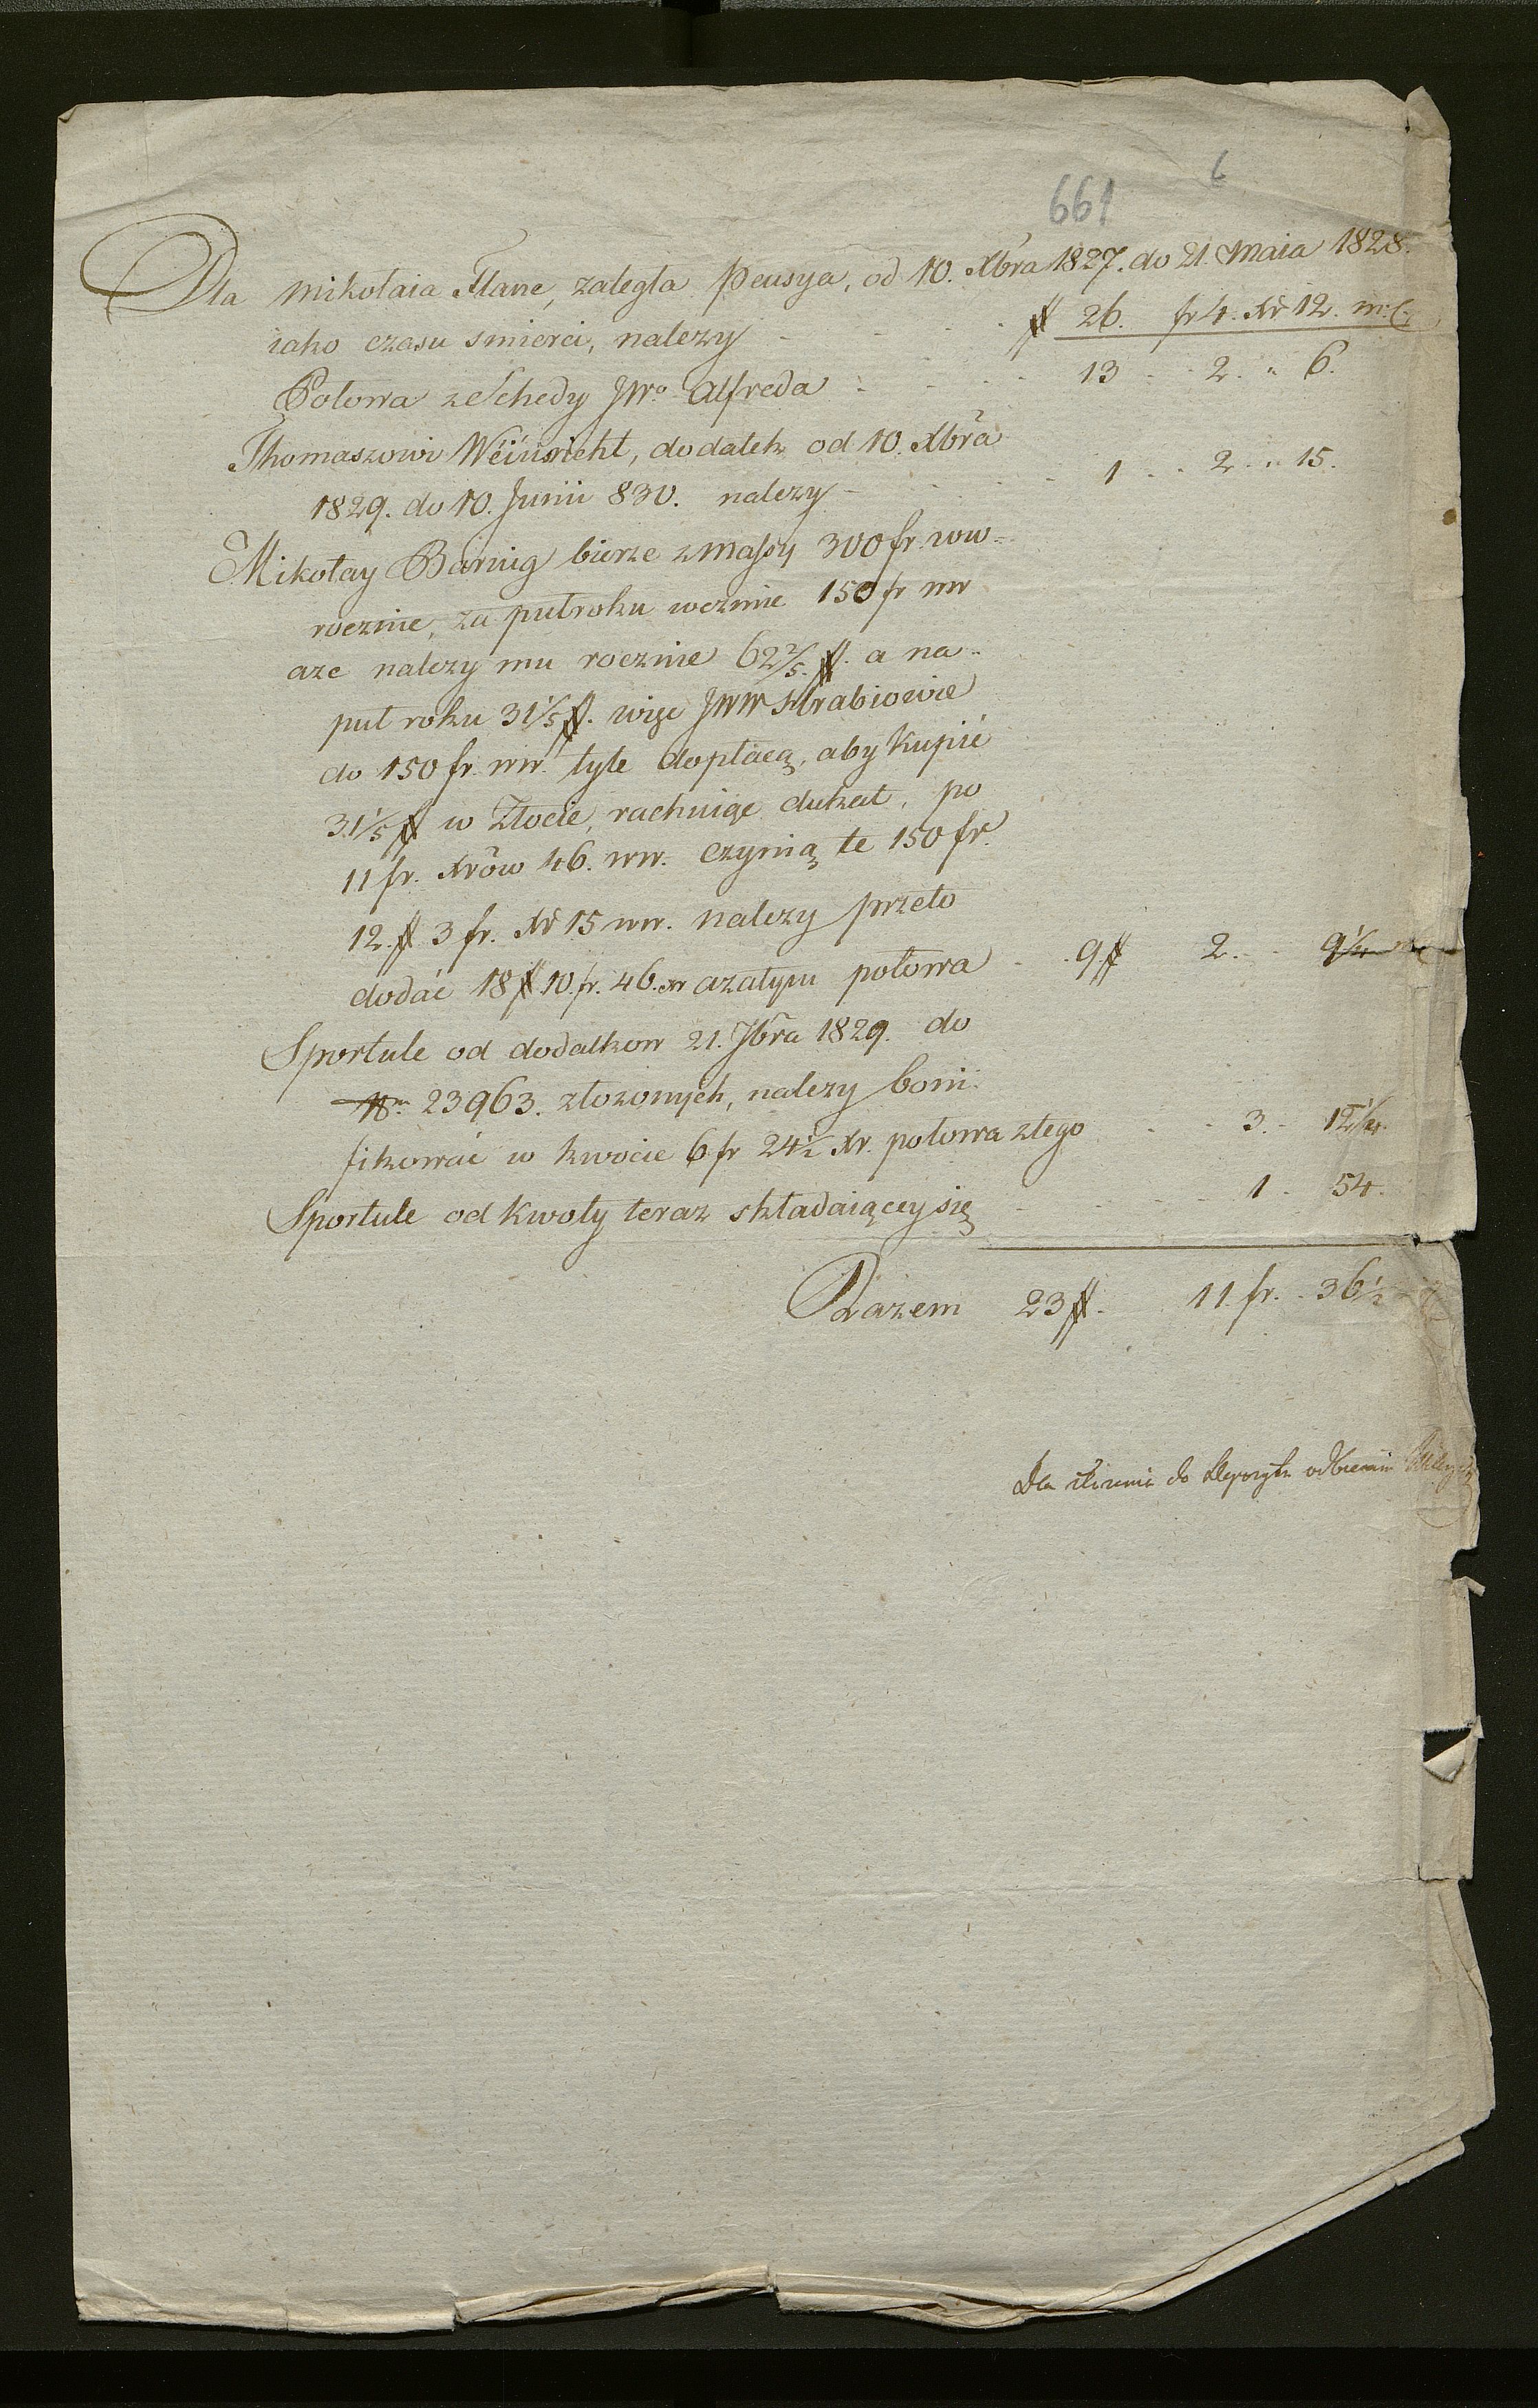 661 6
Dla Mikołaia Flane, zaległa Pensya, od 10. Xbra 1827. do 21. Maia 1828.
iako czasu smierci, nalezy - # 26. fr 4. Xr 12. m.c.
Połowa ze Schedy JWo Alfreda - 13 - 2. " 6.
Thomaszowi Weinricht, dodatek od 10. Xbra
1829. do 10. Junii 830. nalezy - 1 - 2. " 15.
Mikołay Barnig bierze z Massy 300 fr. ww.
rocznie, za puł roku wezmie 150 fr ww
aze nalezy mu rocznie 62 2/5 #. a na
puł roku 31 1/5 #. więc JWW Hrabiowie
do 150 fr. ww. tyle dopłacą, aby kupić
31 1/5 # w Złocie, rachuiąc dukat, po
11 fr. Xrów 46. ww. czynią te 150 fr.
12. # 3 fr. Xr 15 ww. nalezy przeto
dodać 18 # 10. fr. 46. xr azatym połowa - 9 # 2. - 9 1/4
Sportule od dodatkow 21. Jbra 1829. do
23963. złozonych, nalezy boni-
fikować w kwocie 6 fr 24 1/2 Xr. połowa z tego - 3. - 12 1/4.
Sportule od kwoty teraz składaiącey się - 1 - 54.
Razem 23 #. 11. fr. 36 1/2
Dla złożenia do Depozytu odbrałem